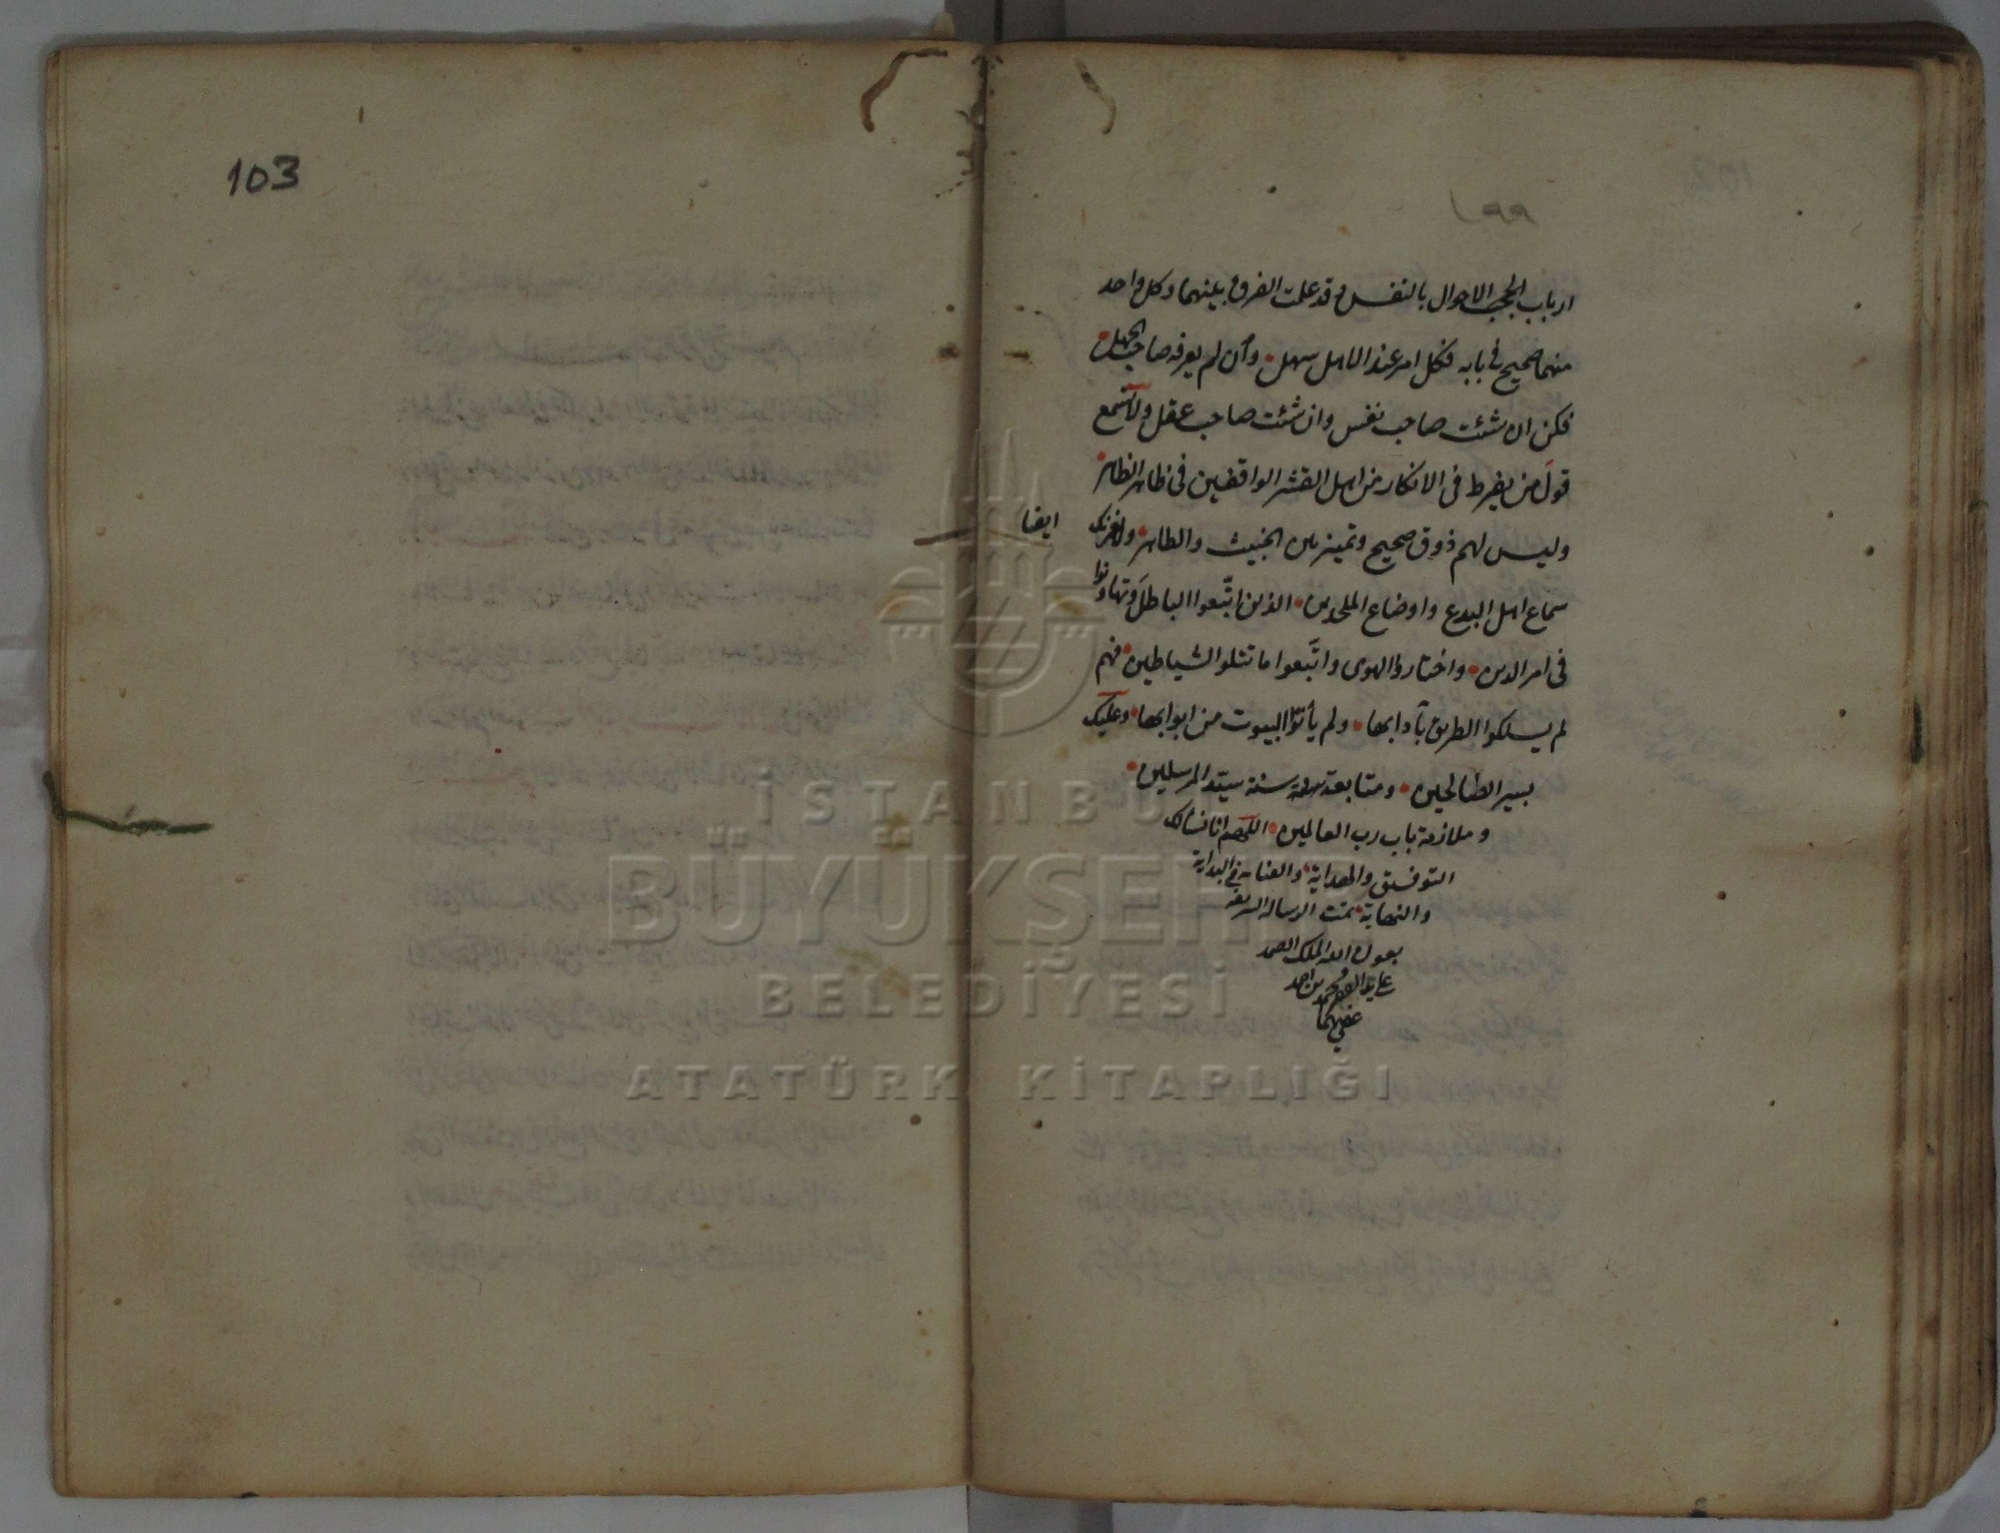 ١٩٩
ارباب الحجب الاحوال بالنفس وقد علمت الفرق بينهما وكل واحد
منهما صحيح فى بابه فكل امر عند الاهل سهل وأن لم يعرفه صاحب الجهل
فكن ان شئت صاحب نفس وان شئت صاحب عقل ولا تسمع
قول من يفرط فى الانكار من اهل القشر الواقفين فى ظاهر الظاهر
وليس لهم ذوق صحيح وتميز بين الخبيث والطاهر ولا يغرنك
ايضا
سماع اهل البدع واوضاع الملحدين الذين اتّبعوا الباطل وتهاونوا
فى امر الدين واختاروا الهوى واتّبعوا ما تتلوا الشياطين فهم
لم يسلكوا الطريق بآدابها ولم يأتوا البيوت من ابوابها وعليك
بسير الصالحين ومتابعة سنة سيّد المرسلين
وملازمة باب رب العالمين اللهم انا نسألك
التوفيق والهداية والعناية فى البداية
والنهاية تمت الرسالة الشريفة
بعون الله الملك الصمد
على يد الفقير محمد بن احمد
عفى عنهما
103
İSTANBU
BÜYÜKŞEH
BELEDİYESİ
ATATÜRK KİTAPLIĞI